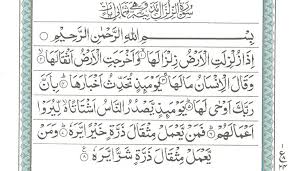 سورة الزلزال مدنية وهي ثمان آيات
بِسْمِ اللهِ الرَّحْمٰنِ الرَّحِيْمِ
اِذَا زُلْزِلَتِ الْاَرْضُ زِلْزَالَهَا ۙ وَاَخْرَجَتِ الْاَرْضُ اَثْقَالَهَا ۙ
وَقَالَ الْاِنْسَانُ مَا لَهَا ۚ يَوْمَئِذٍ تُحَدِّثُ اَخْبَارَهَا ۙ بِاَنَّ
رَبَّكَ اَوْحٰى لَهَا ۗ يَوْمَئِذٍ يَّصْدُرُ النَّاسُ اَشْتَاتًا ۙ لِّيُرَوْا
اَعْمَالَهُمْ ۗ فَمَنْ يَّعْمَلْ مِثْقَالَ ذَرَّةٍ خَيْرًا يَّرَهٗ ۚ وَمَنْ
يَّعْمَلْ مِثْقَالَ ذَرَّةٍ شَرًّا يَّرَهٗ